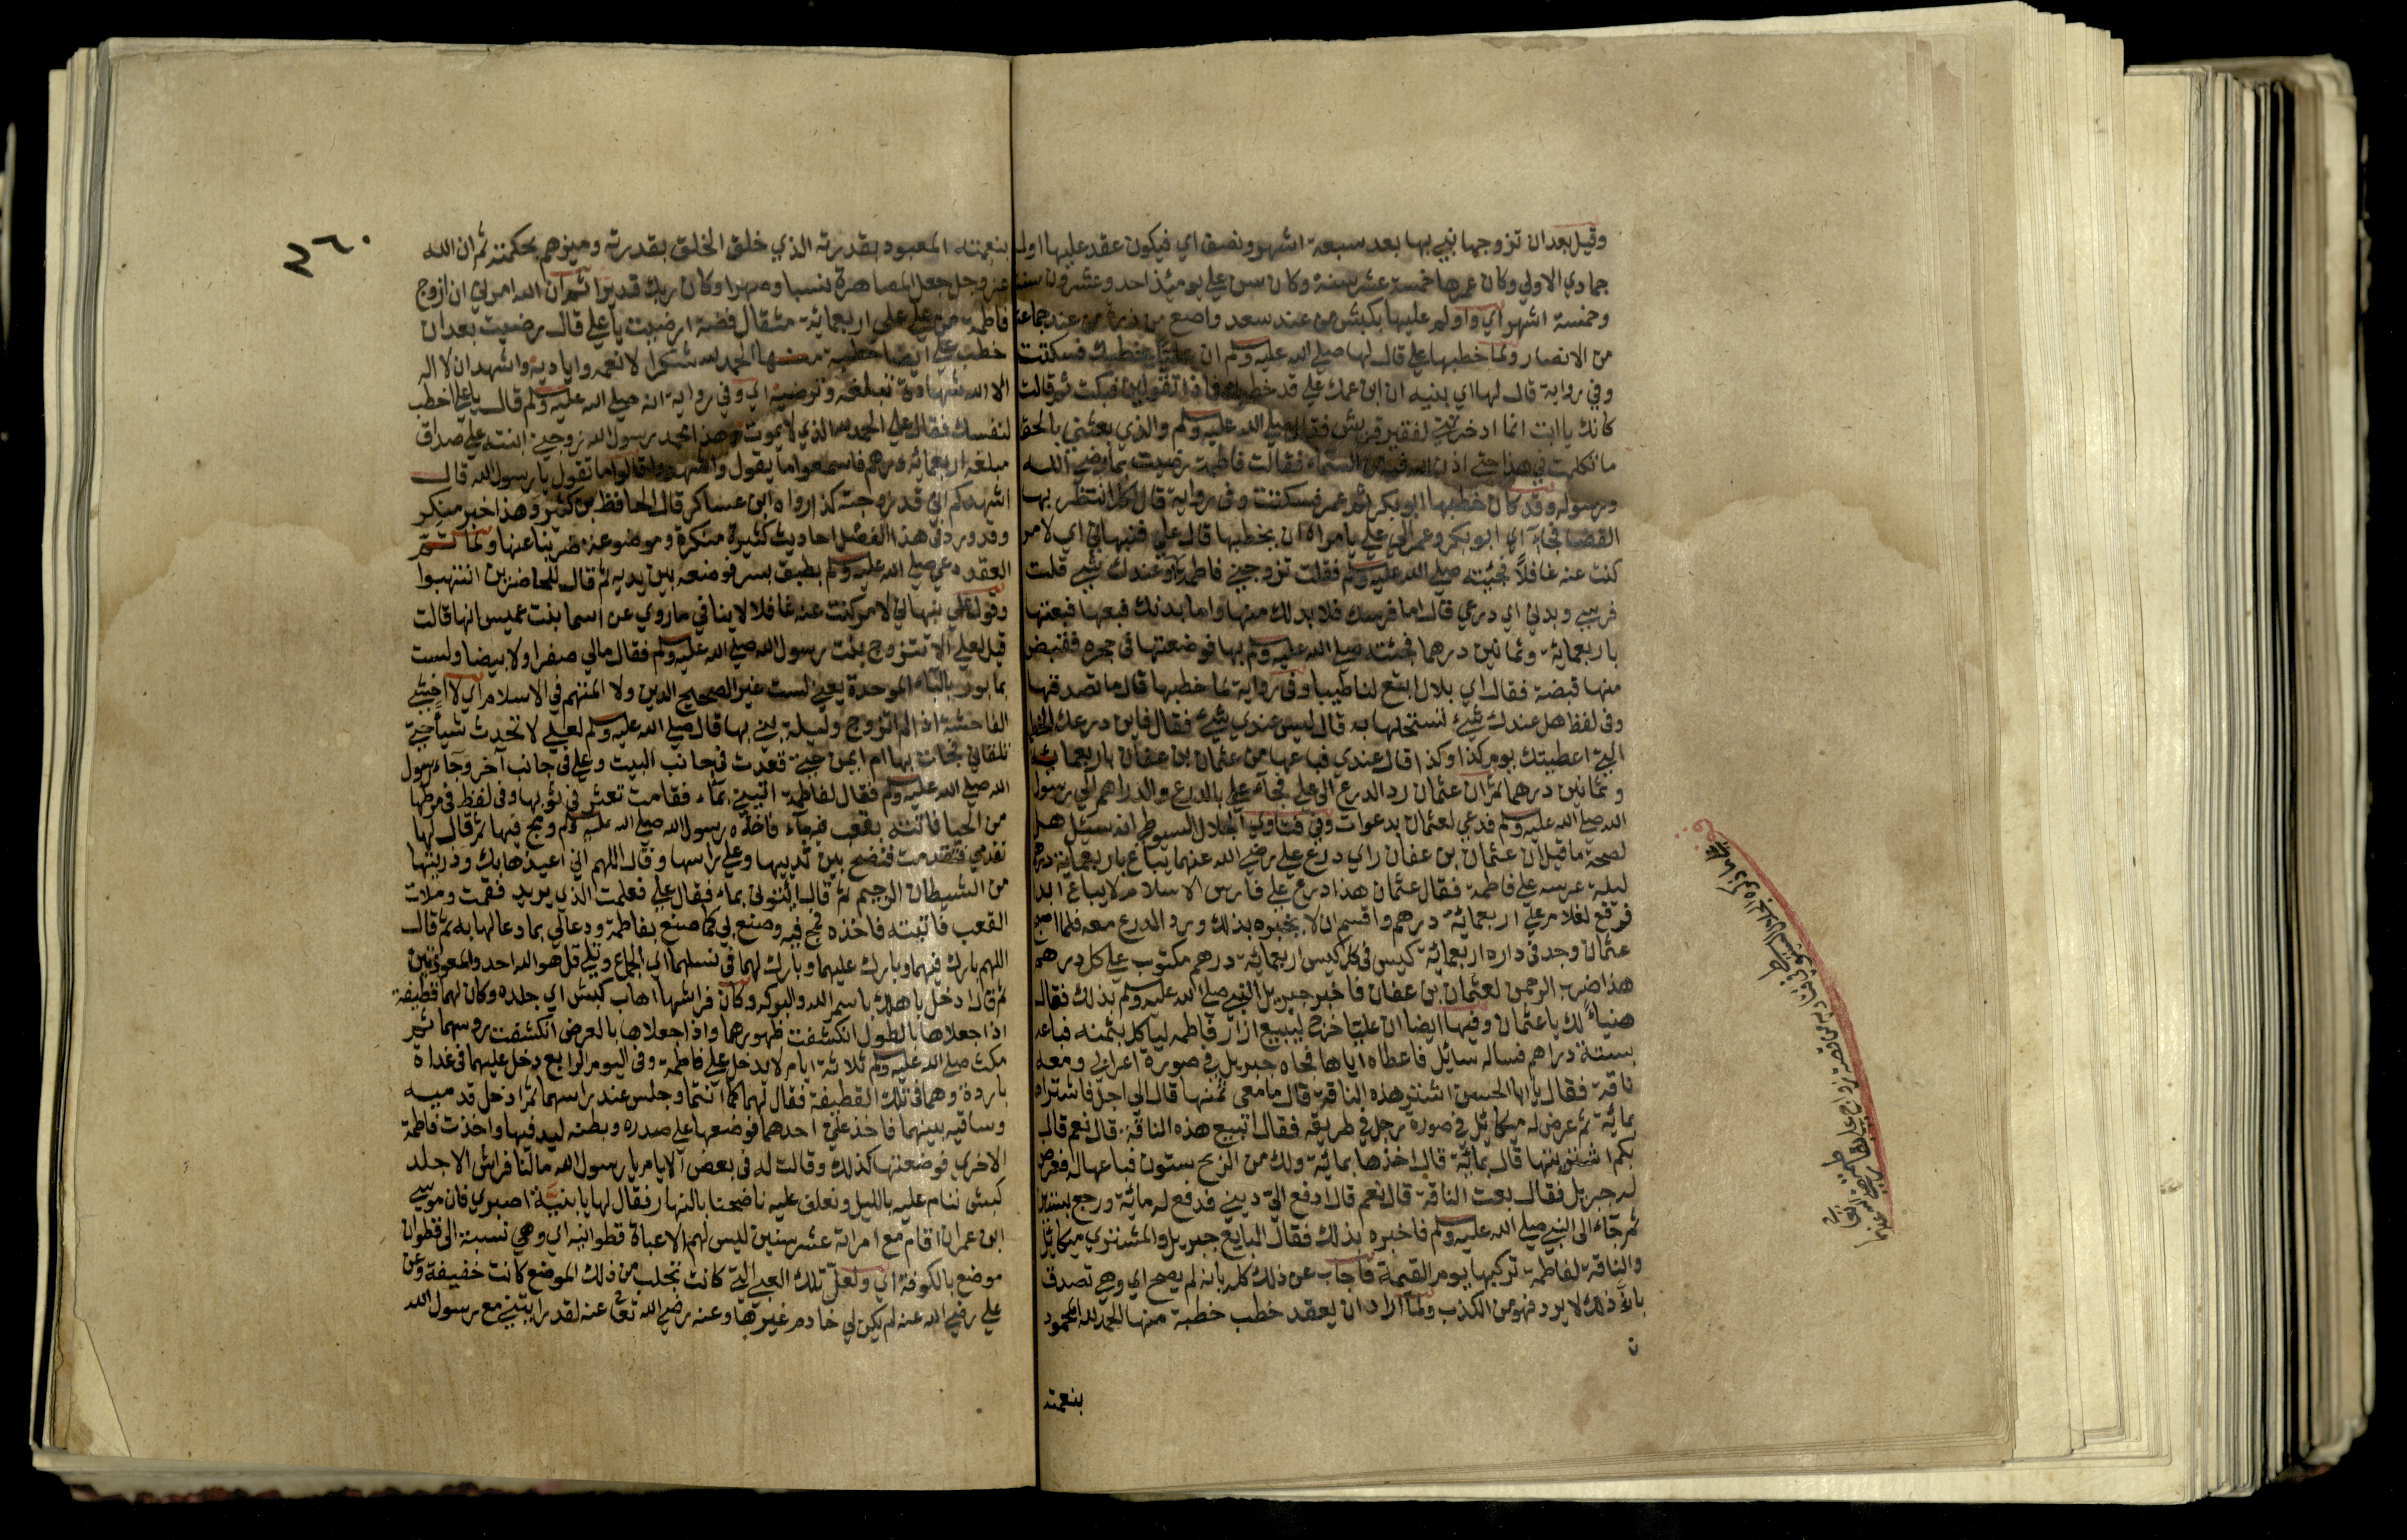 وقيل بعد ان تزوجها بنى بها بعد سبعة اشهر ونصف اي فيكون عقد عليها اول
جمادي الاولي وكان عمرها خمسة عشر سنة وكان سن علي يومئذ احد وعشرون سنة
وخمسة اشهر اي واولم عليها بكبش من عند سعد واصع من ذرة من عند جماعة
من الانصار ولما خطبها علي قال لها صلي الله عليه وسلم ان عليا يخطبك فسكتت
وفي رواية قال لها اي بنية ان ابن عمك علي قد خطبك فماذا تقولين فبكت ثم قالت
كانك يا ابت انما ادخرتني لفقير قريش فقال صلي الله عليه وسلم والذي بعثني بالحق
ما تكلمت في هذا حتي اذن الله فيه من السماء فقالت فاطمة رضيت بما رضي الله
ورسوله وقد كان خطبها ابو بكر ثم عمر فسكت وفي رواية قال لكل انتظر بها
القضا فجاء اي ابو بكر وعمر الي علي يامراه ان يخطبها قال علي فنبهاني اي لامر
كنت عنه غافلا فجئته صلي الله عليه وسلم فقلت تزوجني فاطمة قال وعندك شيء قلت
فرسي وبدني اي درعي قال اما فرسك فلا بد لك منها واما بدنك فبعها فبعتها
باربعماية وثمانين درهما فجئته صلي الله عليه وسلم بها فوضعتها في حجره فقبض
منها قبضة فقال اي بلال ابتع لنا طيبا وفي رواية لما خطبها قال ما تصدقها
وفي لفظ هل عندك شيء تستحلها به قال ليس عندي شيء فقال فاين درعك الحطمية
التي اعطيتك يوم كذا وكذا قال عندي فباعها من عثمان بن عفان باربعماية
وثمانين درهما ثم ان عثمان رد الدرع الي علي فجاء علي بالدرع والدراهم الي رسول
الله صلي الله عليه وسلم فدعي لعثمان بدعوات وفي فتاوي الجلال السيوطي انه سئل هل
لصحة ما قيل ان عثمان بن عفان راي درع علي رضي الله عنهما يباع باربعماية درهم
ليلة عرسه علي فاطمة فقال عثمان هذا درع علي فارس الاسلام لا يباع ابدا
فدفع لغلام علي اربعماية درهم واقسم ان لا يخبره بذلك ورد الدرع معه فلما اصبح
عثمان وجد في داره اربعماية كيس في كل كيس اربعماية درهم مكتوب علي كل درهم
هذا ضرب الرحمن لعثمان بن عفان فاخبر جبريل النبي صلي الله عليه وسلم بذلك فقال
هنياء لك يا عثمان وفيها ايضا ان عليا خرج ليبيع ازار فاطمة لياكل بثمنه فباعه
بستة دراهم فساله سائل فاعطاه اياها فجاه جبريل في صورة اعرابي ومعه
ناقة فقال يا ابا الحسن اشتر هذه الناقة قال ما معي ثمنها قال الي اجل فاشتراه
بماية ثم عرض له ميكائيل في صورة رجل في طريقه فقال اتبيع هذه الناقة قال نعم قال
بكم اشتريتها قال بماية قال اخذها بماية ولك من الربح ستون فباعها له فعرض
له جبريل فقال بعت الناقة قال نعم قال ادفع الي ديني فدفع له ماية ورجع بستين
ثم جاء الي النبي صلي الله عليه وسلم فاخبره بذلك فقال البايع جبريل والمشتري ميكائيل
والناقة لفاطمة تركبها يوم القيمة فاجاب عن ذلك كله بانه لم يصح اي وهي تصدق
بان ذلك لا يرد فهو من الكذب ولما اراد ان يعقد خطب خطبة منها الحمد لله المحمود
بنعمته
٢٦٠
بنعمته المعبود بقدرته الذي خلق الخلق بقدرته وميزهم بحكمته ثم ان الله
عز وجل جعل المصاهرة نسبا وصهرا وكان ربك قديرا ثم ان الله امرني ان ازوج
فاطمة من علي علي اربعماية مثقال فضة ارضيت يا علي قال رضيت بعد ان
خطب علي ايضا خطبة منها الحمد لله شكرا لانعمه واياديه واشهد ان لا اله
الا الله شهادة تبلغه وترضيه اي وفي رواية انه صلي الله عليه وسلم قال يا علي اخطب
لنفسك فقال علي الحمد لله الذي لا يموت وهذا محمد رسول الله زوجني ابنته علي صداق
مبلغه اربعماية درهم فاسمعوا ما يقول واشهدوا قالوا ما تقول يا رسول الله قال
اشهدكم اني قد زوجته كذا رواه ابن عساكر قال الحافظ بن كثير وهذا خبر منكر
وقد ورد في هذا الفضل احاديث كثيرة منكرة وموضوعة ضربنا عنها ولما تم
العقد دعي صلي الله عليه وسلم بطبق بسر فوضعه بين يديه ثم قال للحاضرين انتهبوا
وقول علي نبهاني لامر كنت عنه غافلا لا ينافي ما روي عن اسما بنت عميس انها قالت
قيل لعلي الا تتزوج بنت رسول الله صلي الله عليه وسلم فقال مالي صفرا ولا بيضا ولست
بمابور بالباء الموحدة يعني لست غير الصحيح الدين ولا المتهم في الاسلام اي لا اخشي
الفاحشة اذا لم اتزوج وليلة بني بها قال صلي الله عليه وسلم لعلي لا تحدث شيأ حتي
تلقاني فجات بها ام ايمن حتي قعدت في جانب البيت وعلي في جانب آخر وجاء رسول
الله صلي الله عليه وسلم فقال لفاطمة ائتيني بماء فقامت تعثر في ثوبها وفي لفظ في مرطها
من الحيا فاتته بقعب فيه ماء فاخذه رسول الله صلي الله عليه وسلم ومج فيها ثم قال لها
تقدمي فتقدمت فنضح بين ثدييها وعلي راسها وقال اللهم اني اعيذها بك وذريتها
من الشيطان الرجيم ثم قال ائتوني بماء فقال علي فعلمت الذي يريد فقمت وملات
القعب فاتيته فاخذه فمج فيه وصنع بي كما صنع بفاطمة ودعا لي بما دعا لها به ثم قال
اللهم بارك فيهما وبارك عليهما وبارك لهما في نسلهما اي الجماع وتلي قل هو الله احد والمعوذتين
ثم قال ادخل باهلك باسم الله والبركه وكان فراشها اهاب كبش اي جلده وكان لهما قطيفة
اذا جعلاها بالطول انكشفت ظهورهما واذا جعلاها بالعرض انكشفت روسهما ثم
مكث صلي الله عليه وسلم ثلاثة ايام لا يدخل علي فاطمة وفي اليوم الرابع دخل عليهما في غداة
باردة وهما في تلك القطيفة فقال لهما كما انتما وجلس عند راسهما ثم ادخل قدميه
وساقيه بينهما فاخذ علي احدهما فوضعها علي صدره وبطنه ليدفيها واخذت فاطمة
الاخري فوضعتها كذلك وقالت له في بعض الايام يا رسول الله مالنا فراش الا جلد
كبش ننام عليه بالليل ونعلف عليه ناضحنا بالنهار فقال لها يا بنية اصبري فان موسي
ابن عمران اقام مع امراته عشر سنين ليس لهم الا عباة قطوانيه اي وهي نسبة الي قطوان
موضع بالكوفة اي ولعل تلك العباة التي كانت تجلب من ذلك الموضع كانت خفيفة وعن
علي رضي الله عنه لم يكن لي خادم غيرها وعنه رضي الله تعالي عنه لقد رايتني مع رسول الله